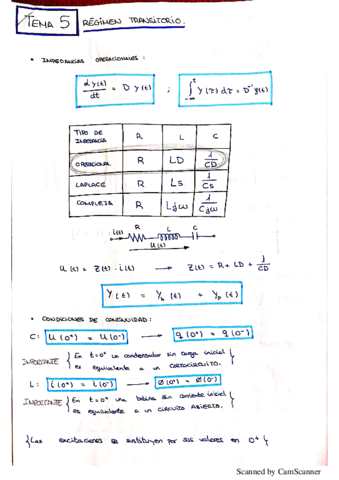 TEMA 5 RÉGIMEN TRANSITORIO.
• IMPEDANCIAS OPERACIONALES :
dy(t)/dt = D y(t) ; ∫_{-∞}^{t} y(τ) dτ = D⁻¹y(t)
TIPO DE IMPEDANCIA R L C
OPERACIONAL R LD 1/CD
LAPLACE R Ls 1/Cs
COMPLEJA R Ljω 1/Cjω
i(t) R L C
u(t)
u(t) = Z(t) · i(t) → Z(t) = R + LD + 1/CD
Y(t) = Yh(t) + Yp(t)
• CONDICIONES DE CONTINUIDAD :
C: u(0⁺) = u(0⁻) → q(0⁺) = q(0⁻)
IMPORTANTE { En t=0⁺ un condensador sin carga inicial
es equivalente a un CORTOCIRCUITO. }
L: i(0⁺) = i(0⁻) → Ø(0⁺) = Ø(0⁻)
IMPORTANTE { En t=0⁺ una bobina sin corriente inicial
es equivalente a un CIRCUITO ABIERTO. }
{Las excitaciones se sustituyen por sus valores en 0⁺}
Scanned by CamScanner